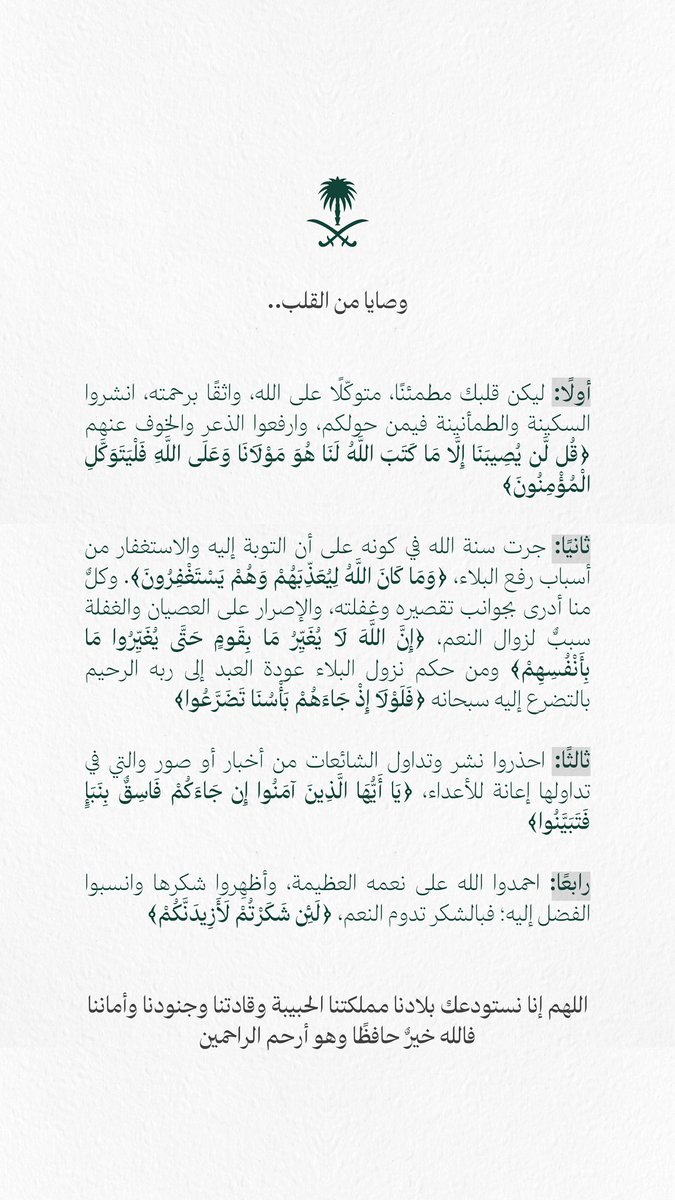 وصايا من القلب..
أولًا: ليكن قلبك مطمئنًا، متوكّلًا على الله، واثقًا برحمته، انشروا
السكينة والطمأنينة فيمن حولكم، وارفعوا الذعر والخوف عنهم
﴿قُل لَّن يُصِيبَنَا إِلَّا مَا كَتَبَ اللَّهُ لَنَا هُوَ مَوْلَانَا وَعَلَى اللَّهِ فَلْيَتَوَكَّلِ
الْمُؤْمِنُونَ﴾
ثانيًا: جرت سنة الله في كونه على أن التوبة إليه والاستغفار من
أسباب رفع البلاء، ﴿وَمَا كَانَ اللَّهُ لِيُعَذِّبَهُمْ وَهُمْ يَسْتَغْفِرُونَ﴾. وكلٌّ
منا أدرى بجوانب تقصيره وغفلته، والإصرار على العصيان والغفلة
سببٌ لزوال النعم، ﴿إِنَّ اللَّهَ لَا يُغَيِّرُ مَا بِقَومٍ حَتَّى يُغَيِّرُوا مَا
بِأَنْفُسِهِمْ﴾ ومن حكم نزول البلاء عودة العبد إلى ربه الرحيم
بالتضرع إليه سبحانه ﴿فَلَوْلَا إِذْ جَاءَهُمْ بَأْسُنَا تَضَرَّعُوا﴾
ثالثًا: احذروا نشر وتداول الشائعات من أخبار أو صور والتي في
تداولها إعانة للأعداء، ﴿يَا أَيُّهَا الَّذِينَ آمَنُوا إِن جَاءَكُمْ فَاسِقٌ بِنَبَإٍ
فَتَبَيَّنُوا﴾
رابعًا: احمدوا الله على نعمه العظيمة، وأظهِروا شكرها وانسبوا
الفضل إليه؛ فبالشكر تدوم النعم، ﴿لَئِن شَكَرْتُمْ لَأَزِيدَنَّكُمْ﴾
اللهم إنا نستودعك بلادنا مملكتنا الحبيبة وقادتنا وجنودنا وأماننا
فالله خيرٌ حافظًا وهو أرحم الراحمين